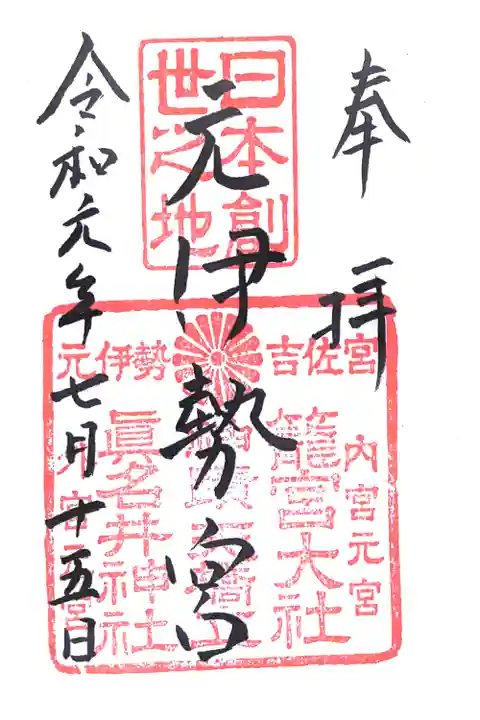 奉拝
日本創
世之地
元伊勢宮
令和元年七月十五日
元伊勢 吉佐宮
内宮元宮
籠宮大社
天橋立
眞名井神社
外宮元宮